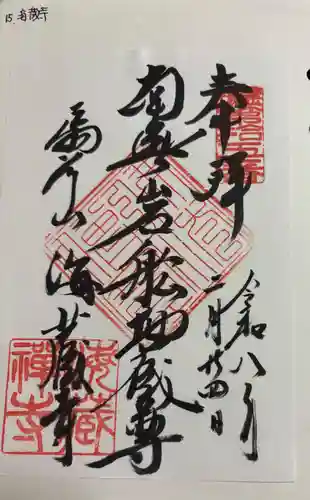 15. 海蔵寺
奉拝
令和八年
二月廿四日
南無岩船地蔵尊
扇谷山
海蔵寺
海蔵
禅寺